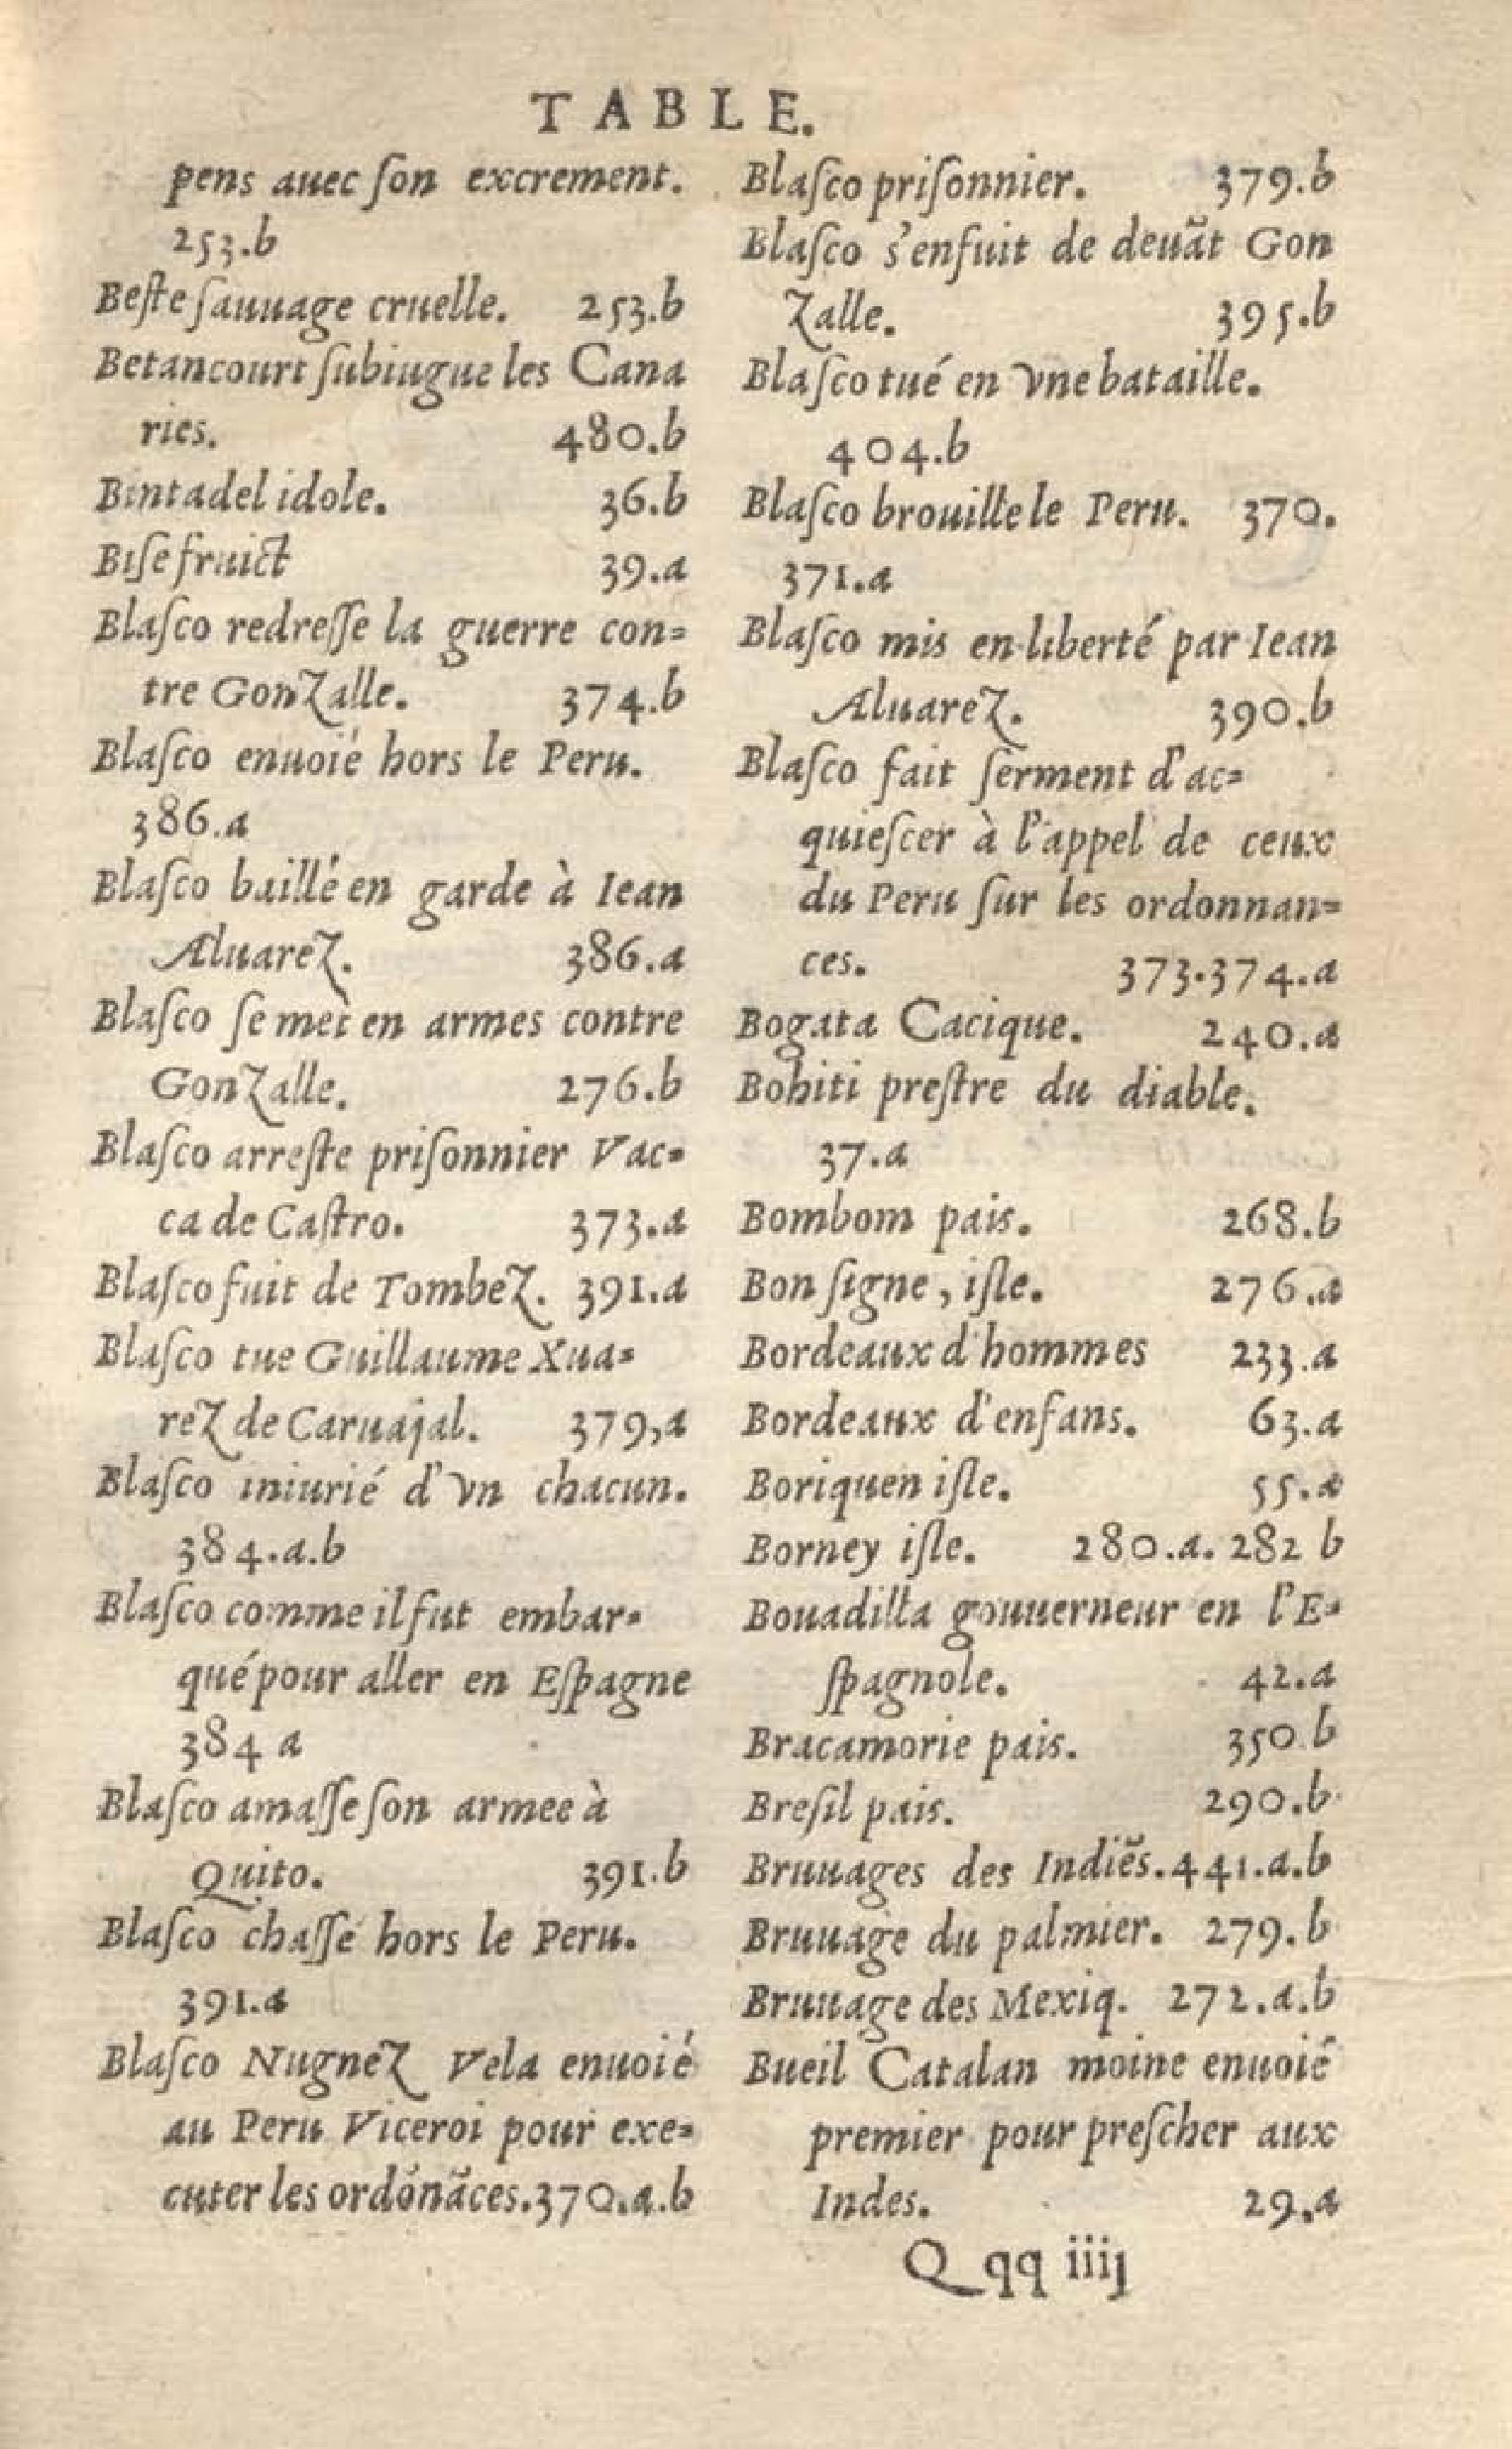 TABLE.
pens auec ſon excrement.
253.b
Beſte ſauuage cruelle. 253.b
Betancourt ſubiugue les Cana
ries. 480.b
Bintadel idole. 36.b
Biſe fruict 39.a
Blaſco redreſſe la guerre con=
tre Gonzalle. 374.b
Blaſco enuoié hors le Peru.
386.a
Blaſco baillé en garde à Iean
Aluarez. 386.a
Blaſco ſe met en armes contre
Gonzalle. 276.b
Blaſco arreſte priſonnier Vac=
ca de Caſtro. 373.a
Blaſco fuit de Tombez. 391.a
Blaſco tue Guillaume Xua=
rez de Caruajal. 379,a
Blaſco iniurié d'vn chacun.
384.a.b
Blaſco comme il fut embar=
qué pour aller en Eſpagne
384 a
Blaſco amaſſe ſon armee à
Quito. 391.b
Blaſco chaſſé hors le Peru.
391.a
Blaſco Nugnez Vela enuoié
au Peru Viceroi pour exe=
cuter les ordõnãces.370.a.b
Blaſco priſonnier. 379.b
Blaſco s'enfuit de deuãt Gon
zalle. 395.b
Blaſco tué en vne bataille.
404.b
Blaſco brouille le Peru. 370.
371.a
Blaſco mis en liberté par Iean
Aluarez. 390.b
Blaſco fait ſerment d'ac=
quieſcer à l'appel de ceux
du Peru ſur les ordonnan=
ces. 373.374.a
Bogata Cacique. 240.a
Bohiti preſtre du diable.
37.a
Bombom pais. 268.b
Bon ſigne, iſle. 276.a
Bordeaux d'hommes 233.a
Bordeaux d'enfans. 63.a
Boriquen iſle. 55.a
Borney iſle. 280.a. 282 b
Bouadilla gouuerneur en l'E=
ſpagnole. 42.a
Bracamorie pais. 350.b
Breſil pais. 290.b
Bruuages des Indiẽs.441.a.b
Bruuage du palmier. 279.b
Bruuage des Mexiq. 272.a.b
Bueil Catalan moine enuoié
premier pour preſcher aux
Indes. 29.a
Qqq iiij